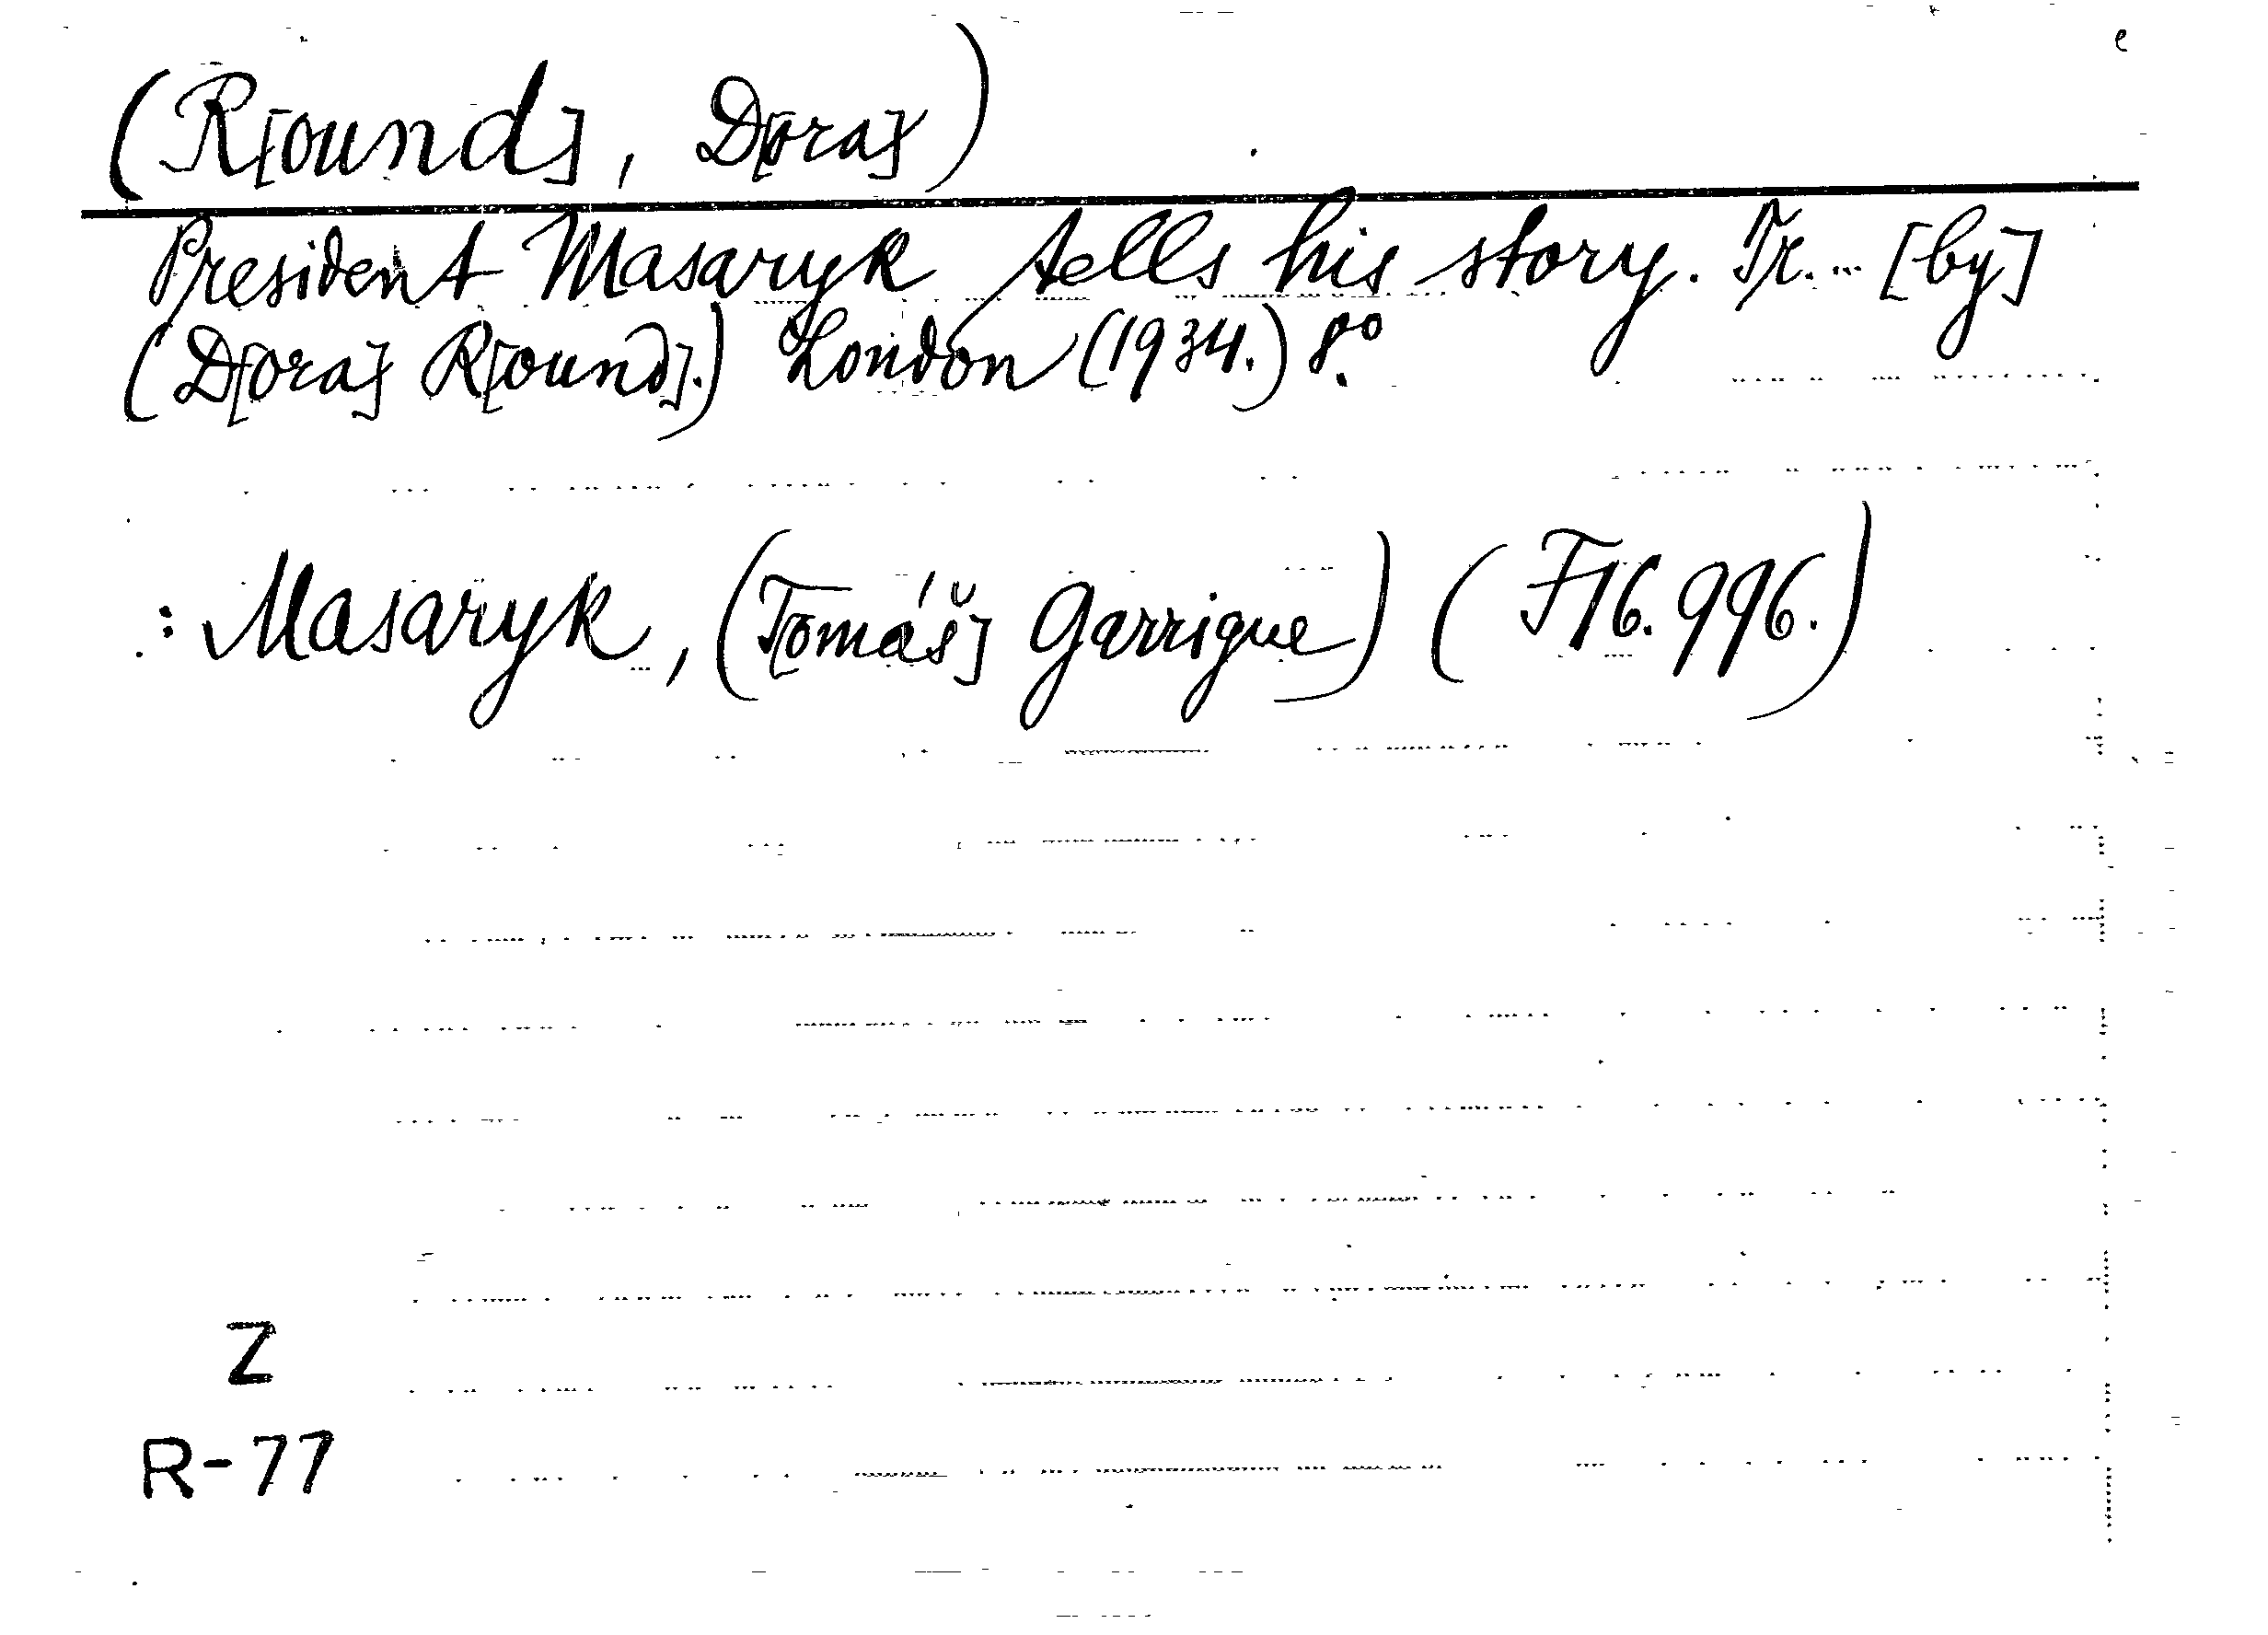 (R[ound], D[ora])
President Masaryk tells his story. Tr. ... [by]
(D[ora] R[ound].) London (1934.) 8°.
: Masaryk, (T[omáš] Garrigue) (F16.996.)
Z
R-77